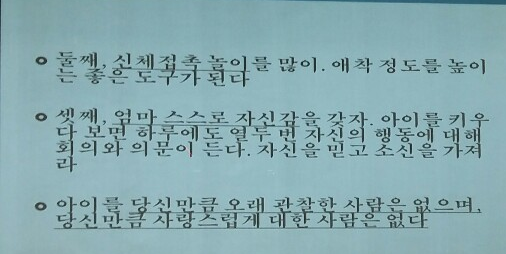 둘째, 신체접촉놀이를 많이. 애착 정도를 높이
는 좋은 도구가 된다
셋째, 엄마 스스로 자신감을 갖자. 아이를 키우
다 보면 하루에도 열두 번 자신의 행동에 대해
회의와 의문이 든다. 자신을 믿고 소신을 가져
라
아이를 당신만큼 오래 관찰한 사람은 없으며,
당신만큼 사랑스럽게 대한 사람은 없다